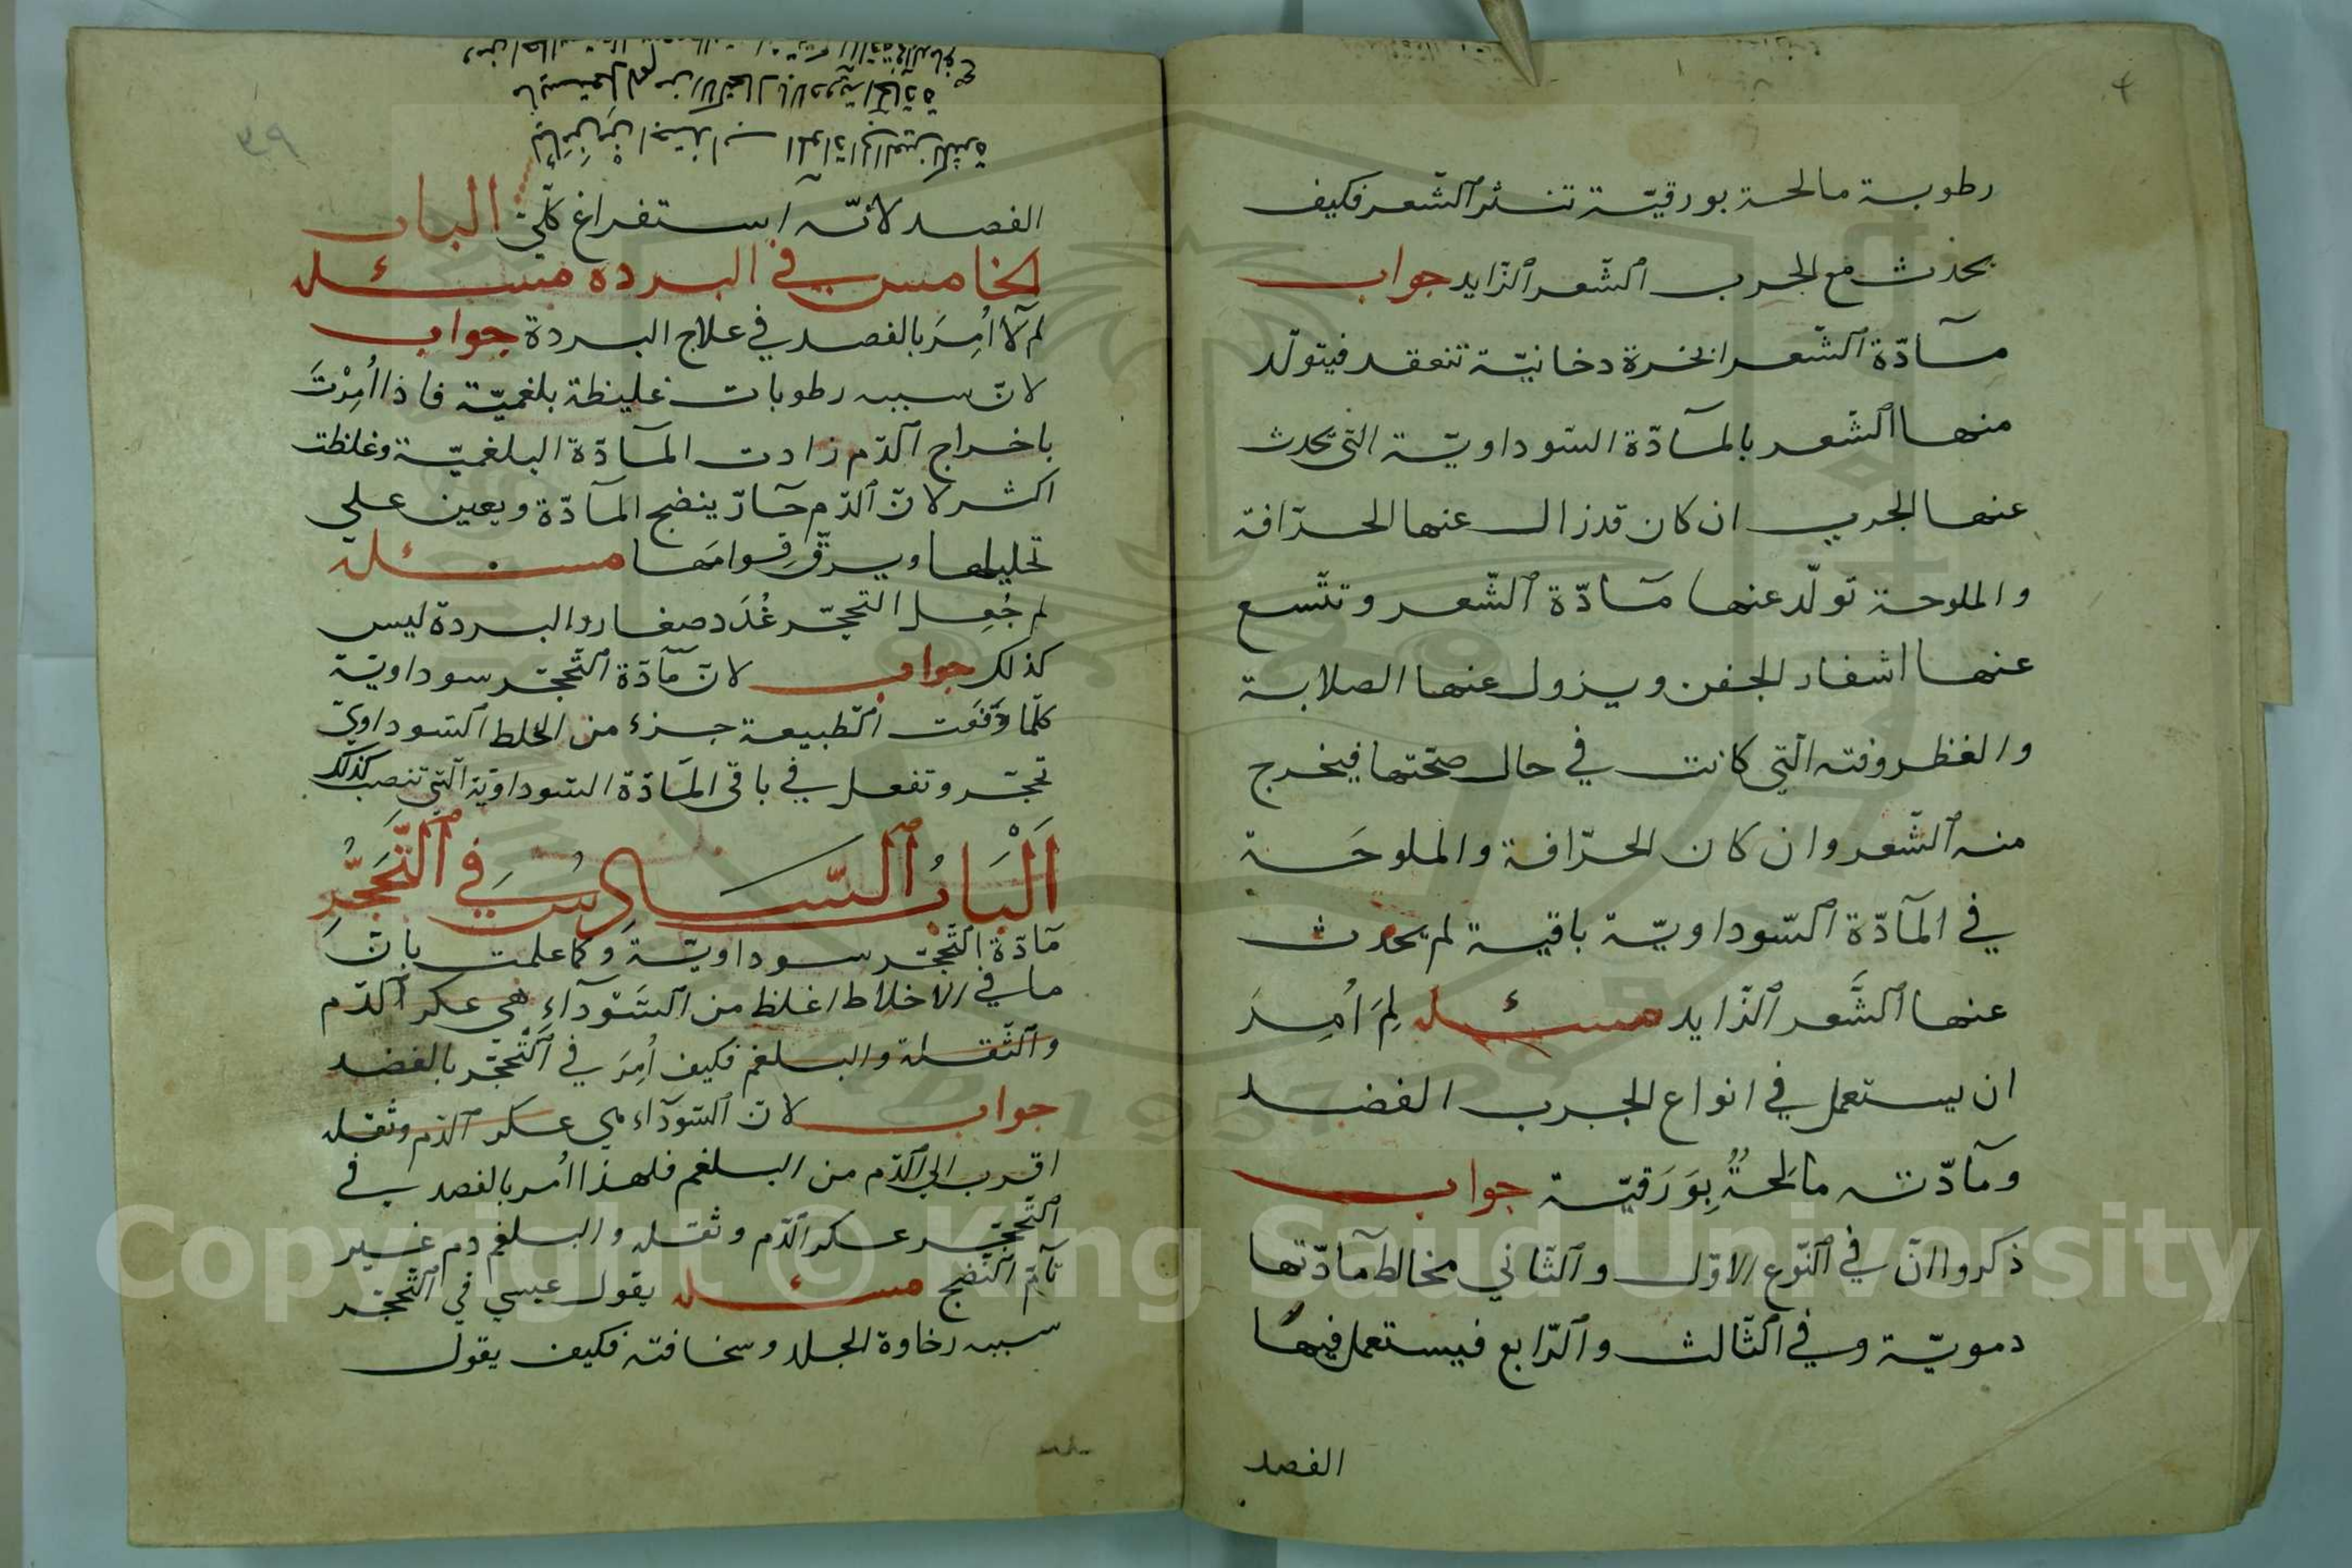 رطوبة مالحة بورقيّة تنثر الشّعر فكيف
يحدث مع الجرب الشّعر الزّايد جواب
مآدّة الشّعر ابخرة دخانيّة تنعقد فيتولّد
منها الشّعر بالمآدّة السّوداويّة التي تحدث
عنها الجرب ان كان قد زال عنها الحرّافة
والملوحة تولّد عنها مآدّة الشّعر وتتّسع
عنها اشفار الجفن ويزول عنها الصلابة
والغظروفته التي كانت في حال صحّتها فيخرج
منه الشّعر وان كان الحرّافة والملوحَة
في المآدّة السّوداويّة باقية لم يحدث
عنها الشَّعر الزّايد مسئله لِمَ اُمِرَ
ان يستعمل في انواع الجرب الفصد
ومآدّته مالحةٌ بِوَرَقيّة جواب
ذكروا انّ في النّوع الاوّل والثّاني مخالط مآدّتها
دمويّة وفي الثّالث والرّابع فيستعمل فيها
الفصد
الفصد لانّه استفراغ كلّي الباب
الخامس في البرده مسئله
لم لا اُمِرَ بالفصد في علاج البردة جواب
لانّ سببه رطوبات غليظة بلغميّة فاذا اُمِرْتَ
باخراج الدّم زادت المآدّة البلغميّة وغلظت
اكثر لانّ الدّم حآرّ ينضج المآدّة ويعين على
تحليلها ويرقّ قِوامَها مسئلة
لم جُعِل التحجّر غُدَد صغار والبردة ليس
كذلك جواب لانّ مآدّة التّحجّر سوداويّة
كلّما وقَفَت الطّبيعة جزء من الخلط السّوداويّ
تحجّر وتفعل في باقي المآدّة السّوداويّة الّتي تنصب كذلك
اَلْبَابُ السَّادِسُ في التَّحَجُّرِ
مآدّة التّحجّر سوداويّة وكما علمت بانّ
ما في الاخلاط اغلظ من السَّوّدآءِ هي عكر الدّم
والثّقله والبلغم فكيف اُمِرَ في التّحجّر بالفصد
جواب لانّ السّودآء هي عكر الدّم وثقله
اقرب الي الدّم من البلغم فلهذا اُمر بالفصد في
التّحجّر عكر الدّم وثقله والبلغم دم غير
تآمّ النّضج مسئله يقول عيسي في التّحجّر
سببه رخاوة الجلد وسخافته فكيف يقول
Copyright © King Saud University
1957